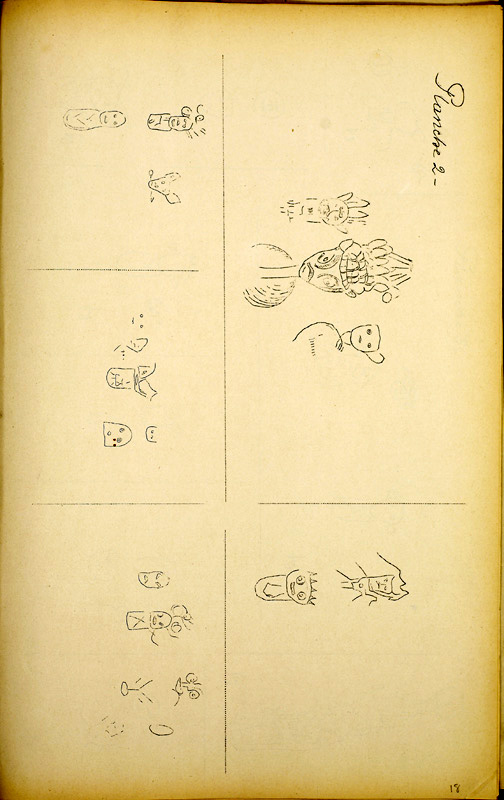 Planche 2-
18